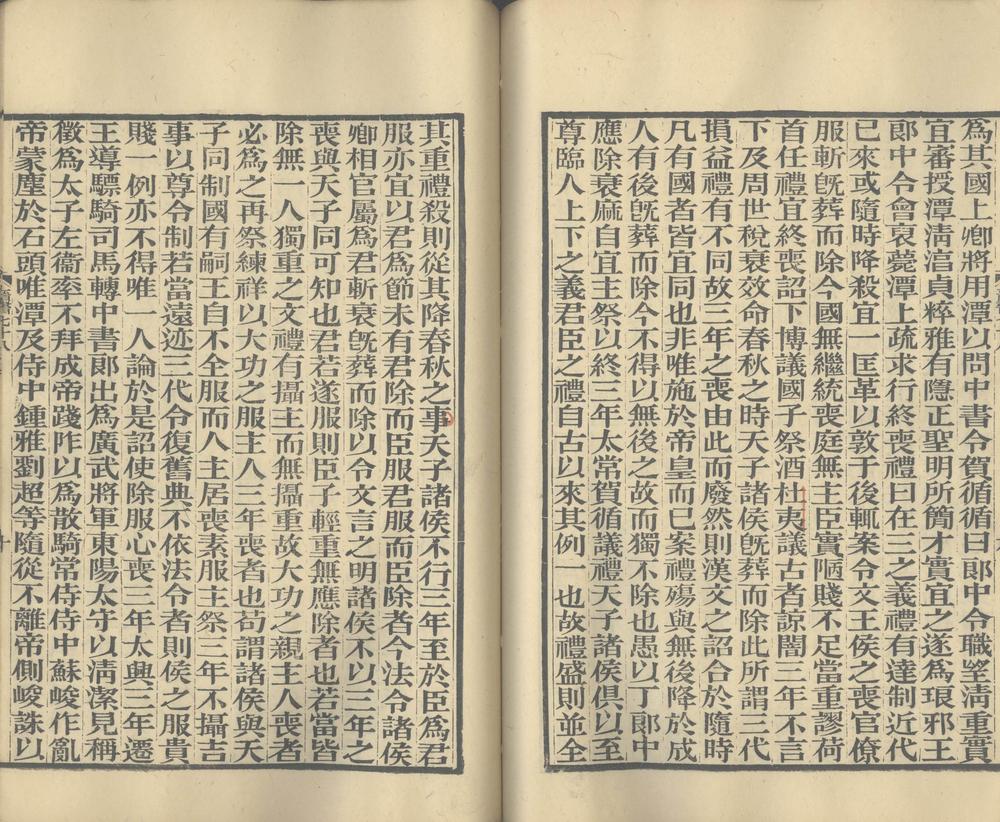 爲其國上卿將用潭以問中書令賀循循曰郎中令職望淸重實
宜審授潭淸淸貞粹雅有隱正聖明所簡才實宜之遂爲琅邪王
郎中令會裒薨潭上疏求行終喪禮曰在三之義禮有達制近代
已來或隨時降殺宜一匡革以敦于後輒案令文王侯之喪官僚
服斬旣葬而除今國無繼統喪庭無主臣實陋賤不足當重謬荷
首任禮宜終喪詔下博議國子祭酒杜夷議古者諒闇三年不言
下及周世稅衰效命春秋之時天子諸侯旣葬而除此所謂三代
損益禮有不同故三年之喪由此而廢然則漢文之詔合於隨時
凡有國者皆宜同也非唯施於帝皇而已案禮殤與無後降於成
人有後旣葬而除今不得以無後之故而獨不除也愚以丁郎中
應除衰麻自宜主祭以終三年太常賀循議禮天子諸侯俱以至
尊臨人上下之義君臣之禮自古以來其例一也故禮盛則並全
其重禮殺則從其降春秋之事天子諸侯不行三年至於臣爲君
服亦宜以君爲節未有君除而臣服君服而臣除者今法令諸侯
卿相官屬爲君斬衰旣葬而除以令文言之明諸侯不以三年之
喪與天子同可知也君若遂服則臣子輕重無應除者也若當皆
除無一人獨重之文禮有攝主而無攝重故大功之親主人喪者
必爲之再祭練祥以大功之服主人三年喪者也苟謂諸侯與天
子同制國有嗣王自不全服而人主居喪素服主祭三年不攝吉
事以尊令制若當遠迹三代令復舊典不依法令者則侯之服貴
賤一例亦不得唯一人論於是詔使除服心喪三年太興三年遷
王導驃騎司馬轉中書郎出爲廣武將軍東陽太守以淸潔見稱
徵爲太子左衞率不拜成帝踐阼以爲散騎常侍侍中蘇峻作亂
帝蒙塵於石頭唯潭及侍中鍾雅劉超等隨從不離帝側峻誅以